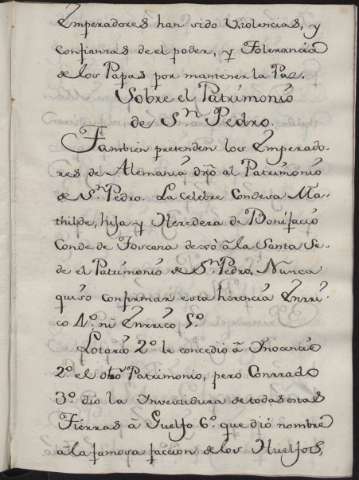 Emperadores han sido Violencias, y
confianzas de el poder, y Tolerancia
de los Papas por mantener la Paz.
Sobre el Patrimonio
de Sn Pedro.
Tambien pretenden los Emperado-
res de Alemania dro al Patrimonio
de Sn Pedro. La celebre Condesa Ma-
thilde, hija y Heredera de Bonifacio
Conde de Toscana dexò à la Santa Se-
de el Patrimonio de Sn Pedro. Nunca
quiso confirmar esta herencia Enrri-
co 4º ni Enrrico 5º
Lotario 2º le concediò à Inocencio
2º el dho Patrimonio, pero Conrrado
3º dio la Investidura de todas estas
Tierras à Guelfo 6º que diò nombre
a la famosa faccion de los Huelfos,